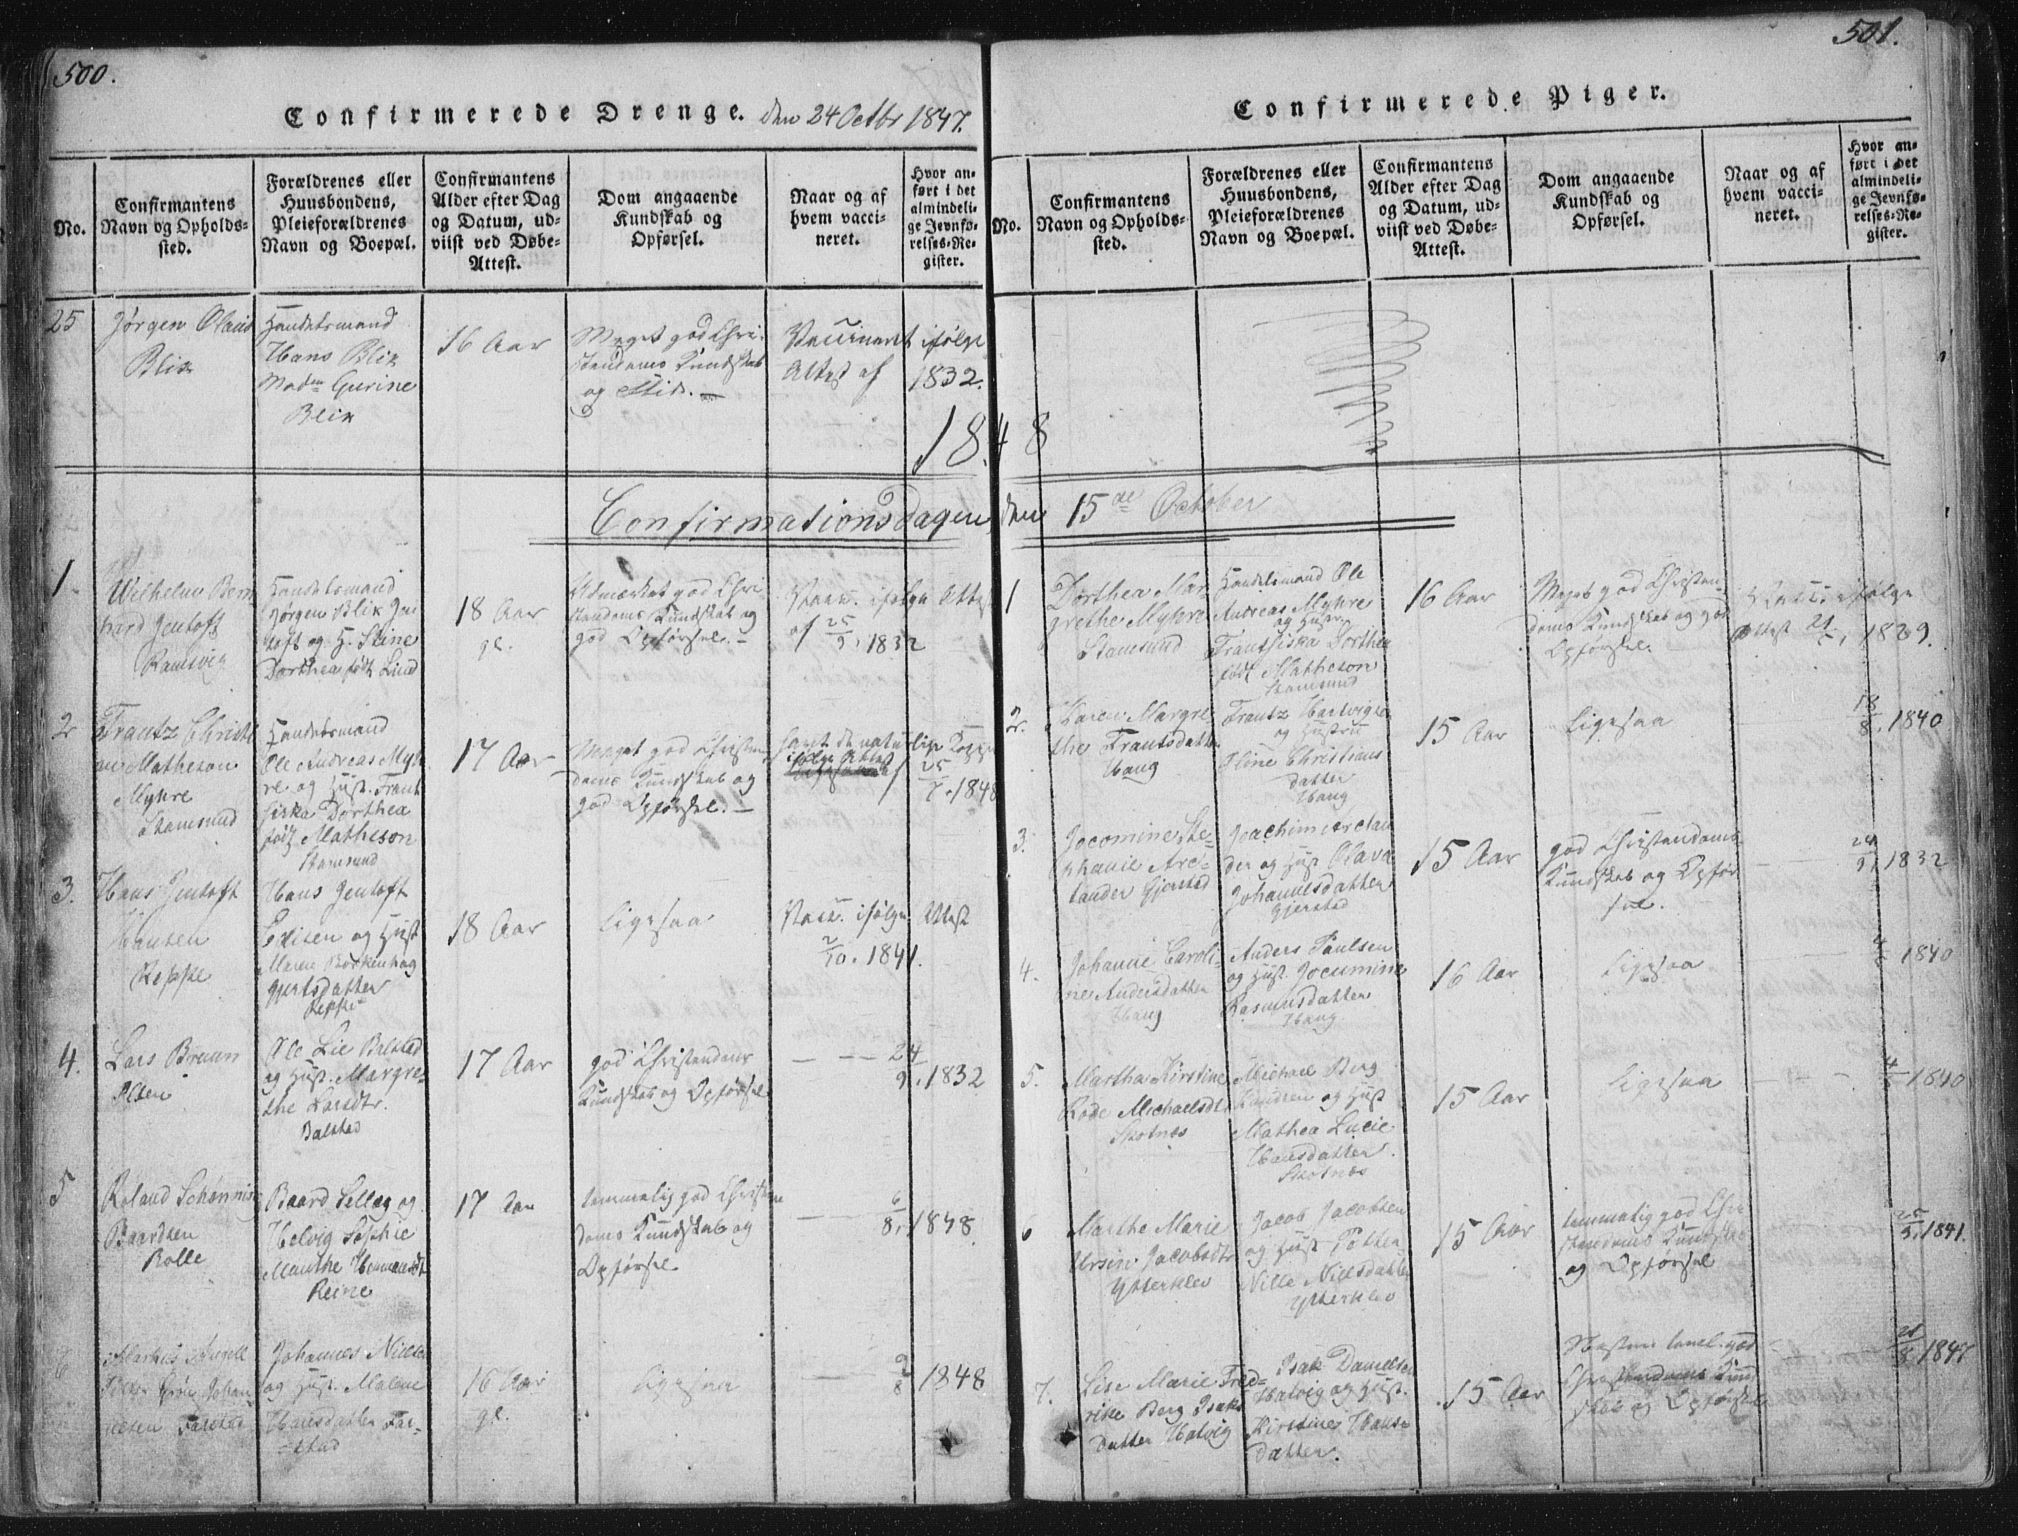 500.
Confirmerede Drenge. den 24 Octbr 1847.
No.
Confirmantens
Navn og Opholds-
sted.
Forældrenes eller
Huusbondens,
Pleieforældrenes
Navn og Boepæl.
Confirmantens
Alder efter Dag
og Datum, ud-
viist ved Døbe-
Attest.
Dom angaaende
Kundskab og
Opførsel.
Naar og af
hvem vacci-
neret.
Hvor an-
ført i det
almindeli-
ge Jevnfø-
relses-Re-
gister.
25
Jørgen Olaus
Blix
Handelsmand
Hans Blix
Mad Gurine
Blix
16 Aar
Meget god Chri-
stendoms Kundskab
og Flid.
Vaccineret ifølge
Attest af 1832.
1848
Confirmationsdagen den 15de October
1.
Wilhelm Bern
hard Jentoft
Ramsvig
Handelsmand
Jørgen Blix Jen
toft og H. Stine
Dorthea født Lund
18 Aar
gl.
Udmærket god Chri
stendoms Kundskab og
god Opførsel.
Vacc. ifølge Attest
af 25/9 1832
2
Frantz Christi
an Matheson
Myhre
Stamsund
Handelsmand
Ole Andreas Myh
re og Hust. Frant
siska Dorthea
født Matheson
Stamsund
17 Aar
Meget god Christen
doms Kundskab og
god Opførsel.
havt de naturlige Kopper
ifølge Attest af
25/7 1848
3.
Hans Jentoft
Hansen
Reppe
Hans Jentoft
Edisen og Hust
Maren Borkenhag
Gjertsdatter
Reppe
18 Aar
Ligesaa
Vacc. ifølge Attest
2/10. 1841.
4.
Lars Bruun
Olsen
Ole Lie Balstad
og Hust. Margre-
the Larsdtr.
Balstad
17 Aar
god Christendoms
Kundskab og Opførsel
24/9. 1832
5
Roland Schønning
Baardsen
Rolle
Baard Selleg og
Helvig Sophie
Manthe
Reine
17 Aar
temmelig god Christen
doms Kundskab og
Opførsel
6/8. 1848.
6
Markus Angell
Johan
nesen Farstad
Johannes Nielsen
og Hust. Malene
Hansdatter Far-
stad
16 Aar
gl.
Ligesaa
9/8 1848
501.
Confirmerede Piger.
No.
Confirmantens
Navn og Opholds-
sted.
Forældrenes eller
Huusbondens,
Pleieforældrenes
Navn og Boepæl.
Confirmantens
Alder efter Dag
og Datum, ud-
viist ved Døbe-
Attest.
Dom angaaende
Kundskab og
Opførsel.
Naar og af
hvem vacci-
neret.
Hvor an-
ført i det
almindeli-
ge Jevnfø-
relses-Re-
gister.
1
Dorthea Mar
grethe Myhre
Stamsund
Handelsmand Ole
Andreas Myhre
og Hustr.
Frantsiska Dorthea
født Matheson
Stamsund
16 Aar
Meget god Christen-
doms Kundskab og god
Opførsel.
Vacc. ifølge
Attest 1829.
2.
Karen Margre
the Frantsdatter
Haug
Frantz Hartvigsen
og Hustru
Oline Christians
datter
Haug
15 Aar
Ligesaa
18/8. 1840.
3.
Jocomine Ste-
phanie Arc-
tander Gjerstad
Joachim Arctan
der og Hust Olava
Johannesdatter
Gjerstad
15 Aar
god Christendoms
Kundskab og Opfør
sel.
24/9 1832
4.
Johanne Caroli-
ne Andersdatter
Haug
Anders Paulsen
og Hust. Jocumine
Rasmusdatter
Haug
16 Aar
Ligesaa
1840
5.
Martha Kirstine
Rode Michaelsdtr
Skotnes
Michael Berg
Knudsen og Hust
Mathea Lucie
Hansdatter
Skotnes
15 Aar
Ligesaa
1840
6
Marthe Marie
Ursin Jacobsdtr
Ytterklev
Jacob Jacobsen
og Hust Potter
Nille Nillsdatter
Ytterklev
15 Aar
temmelig god Chri
stendoms Kundskab
og Opførsel
25/9. 1841.
7.
Lise Marie Fred-
rike Berg Isaks
Datter Hatvig
Isak Danielsen
Hatvig og Hust.
Kirstine Hans
Datter.
15 Aar
Næsten temmel. god
Christendoms Kund
skab og Opførsel
1847